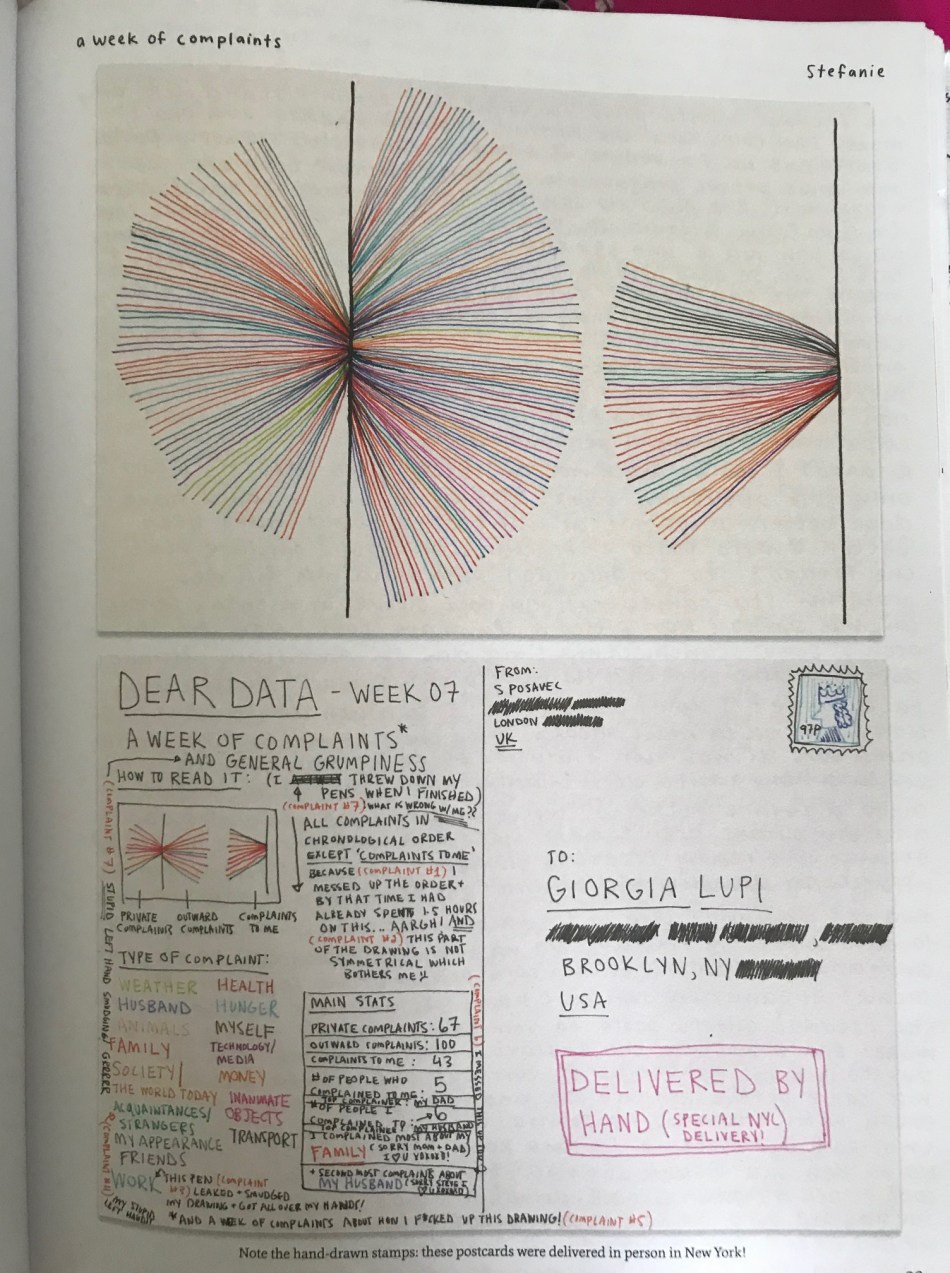 a week of complaints
Stefanie
DEAR DATA - WEEK 07
A WEEK OF COMPLAINTS*
AND GENERAL GRUMPINESS
HOW TO READ IT: (I THREW DOWN MY
PENS WHEN I FINISHED)
(COMPLAINT #7) WHAT IS WRONG W/ME??
ALL COMPLAINTS IN
CHRONOLOGICAL ORDER
EXCEPT 'COMPLAINTS TO ME'
BECAUSE (COMPLAINT #1) I
MESSED UP THE ORDER +
BY THAT TIME I HAD
ALREADY SPENT 1.5 HOURS
ON THIS... AARGH! AND
(COMPLAINT #2) THIS PART
OF THE DRAWING IS NOT
SYMMETRICAL WHICH
BOTHERS ME
PRIVATE COMPLAINTS
OUTWARD COMPLAINTS
COMPLAINTS TO ME
TYPE OF COMPLAINT:
WEATHER
HUSBAND
ANIMALS
FAMILY
SOCIETY/
THE WORLD TODAY
ACQUAINTANCES/
STRANGERS
MY APPEARANCE
FRIENDS
WORK
HEALTH
HUNGER
MYSELF
TECHNOLOGY/
MEDIA
MONEY
INANIMATE
OBJECTS
TRANSPORT
THIS PEN (COMPLAINT
#3) LEAKED + SMUDGED
MY DRAWING + GOT ALL OVER MY HANDS!
MAIN STATS
PRIVATE COMPLAINTS: 67
OUTWARD COMPLAINTS: 100
COMPLAINTS TO ME: 43
# OF PEOPLE WHO
COMPLAINED TO ME: 5
TOP COMPLAINER: MY DAD
# OF PEOPLE I
COMPLAINED TO: 6
MY HUSBAND
I COMPLAINED MOST ABOUT MY
FAMILY (SORRY MOM + DAD)
I ♡ U XOXOXO!
+ SECOND MOST COMPLAINTS ABOUT
MY HUSBAND
STUPID LEFT HAND SMUDGING GRRRR
MY STUPID
LEFT HAND!!
I MESSED THIS UP TOO
*AND A WEEK OF COMPLAINTS ABOUT HOW I F*CKED UP THIS DRAWING! (COMPLAINT #5)
FROM:
S POSAVEC
LONDON
UK
97P
TO:
GIORGIA LUPI
BROOKLYN, NY
USA
DELIVERED BY
HAND (SPECIAL NYC
DELIVERY!)
Note the hand-drawn stamps: these postcards were delivered in person in New York!